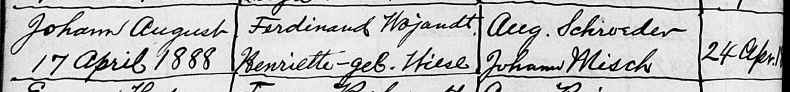 Johann August Ferdinand Wojandt. Aug. Schroeder
17 April 1888 Henriette-geb. Wiese Johann Misch 24 Apr.